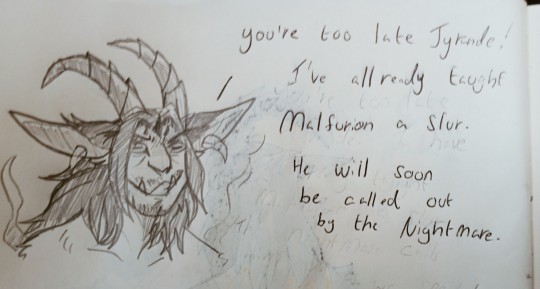 you're too late Tyrande!
I've allready taught
Malfurion a slur.
He will soon
be called out
by the Nightmare.